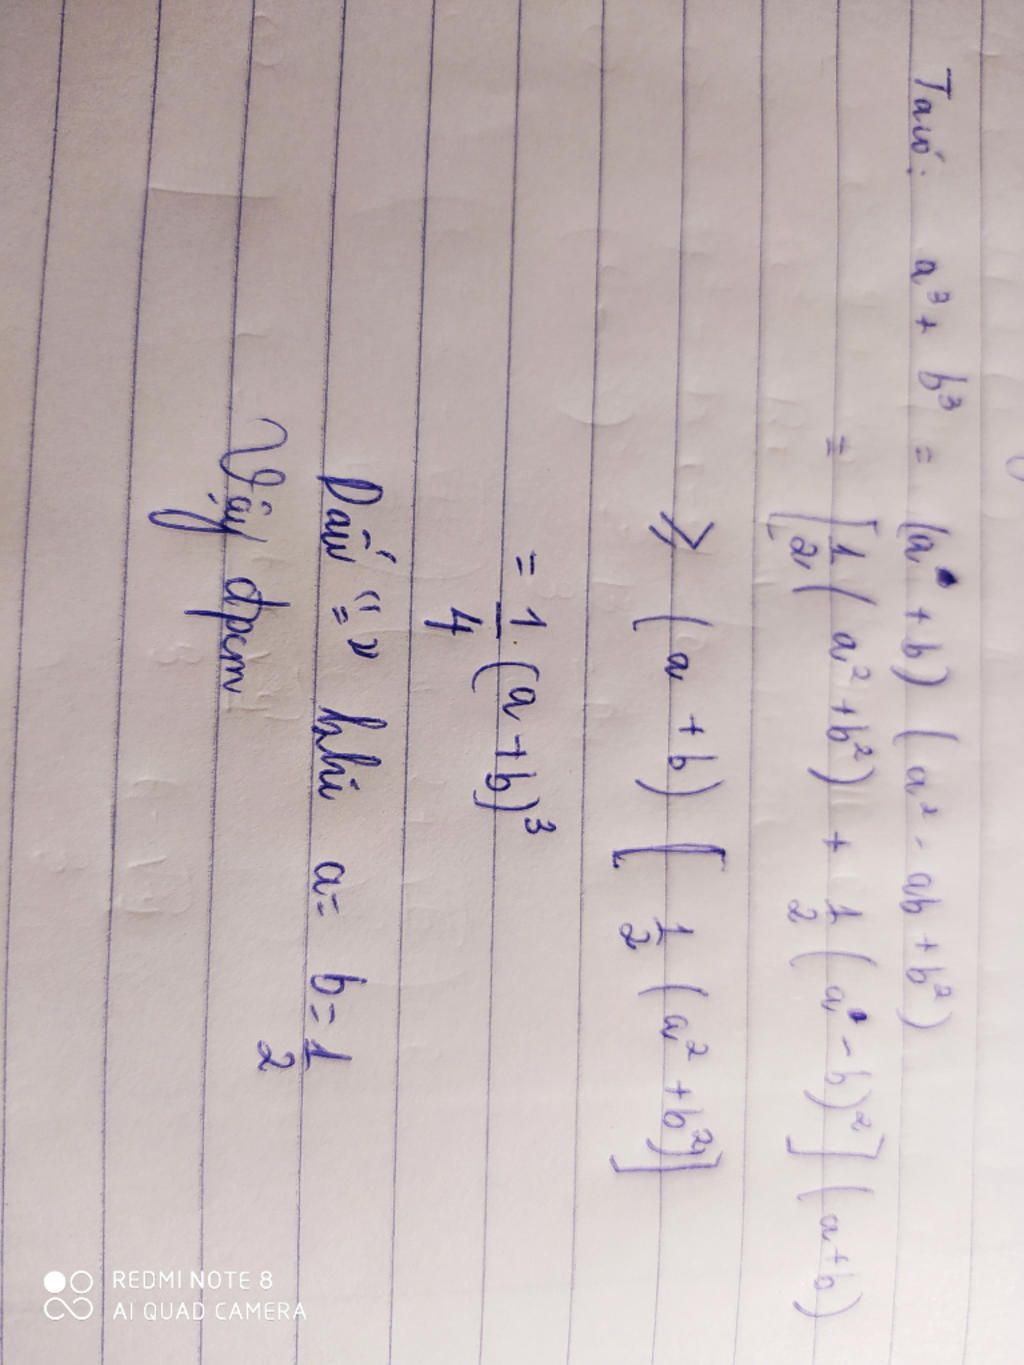 Ta có: a³ + b³ = (a + b) (a² - ab + b²)
= [1/2 (a² + b²) + 1/2 (a - b)²] (a+b)
⩾ (a + b) [1/2 (a² + b²)]
= 1/4 (a + b)³
Dấu "=" khi a = b = 1/2
Vậy đpcm
REDMI NOTE 8
AI QUAD CAMERA